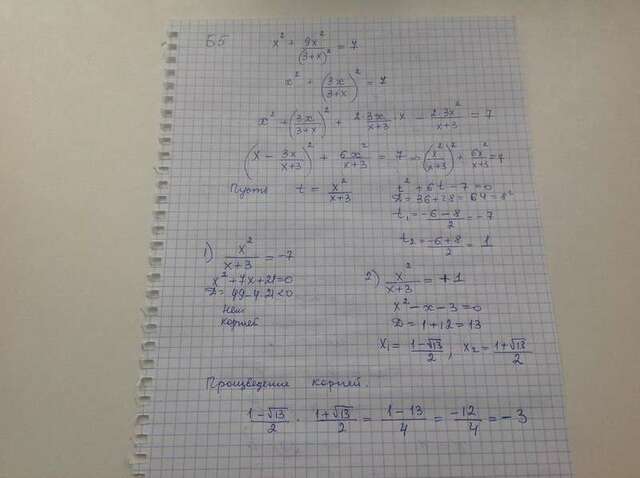 Б5 x² + 9x²/(3+x)² = 7
x² + (3x/(3+x))² = 7
x² + (3x/(3+x))² + 2·3x/(x+3) · x − 2·3x²/(x+3) = 7
(x − 3x/(x+3))² + 6x²/(x+3) = 7 → (x²/(x+3))² + 6x²/(x+3) = 7
Пусть t = x²/(x+3)
t² + 6t − 7 = 0
D = 36 + 28 = 64 = 8²
t₁ = (−6−8)/2 = −7
t₂ = (−6+8)/2 = 1
1) x²/(x+3) = −7
x² + 7x + 21 = 0
D = 49 − 4·21 < 0
Нет
корней
2) x²/(x+3) = +1
x² − x − 3 = 0
D = 1 + 12 = 13
x₁ = (1−√13)/2, x₂ = (1+√13)/2
Произведение корней.
(1−√13)/2 · (1+√13)/2 = (1−13)/4 = −12/4 = −3